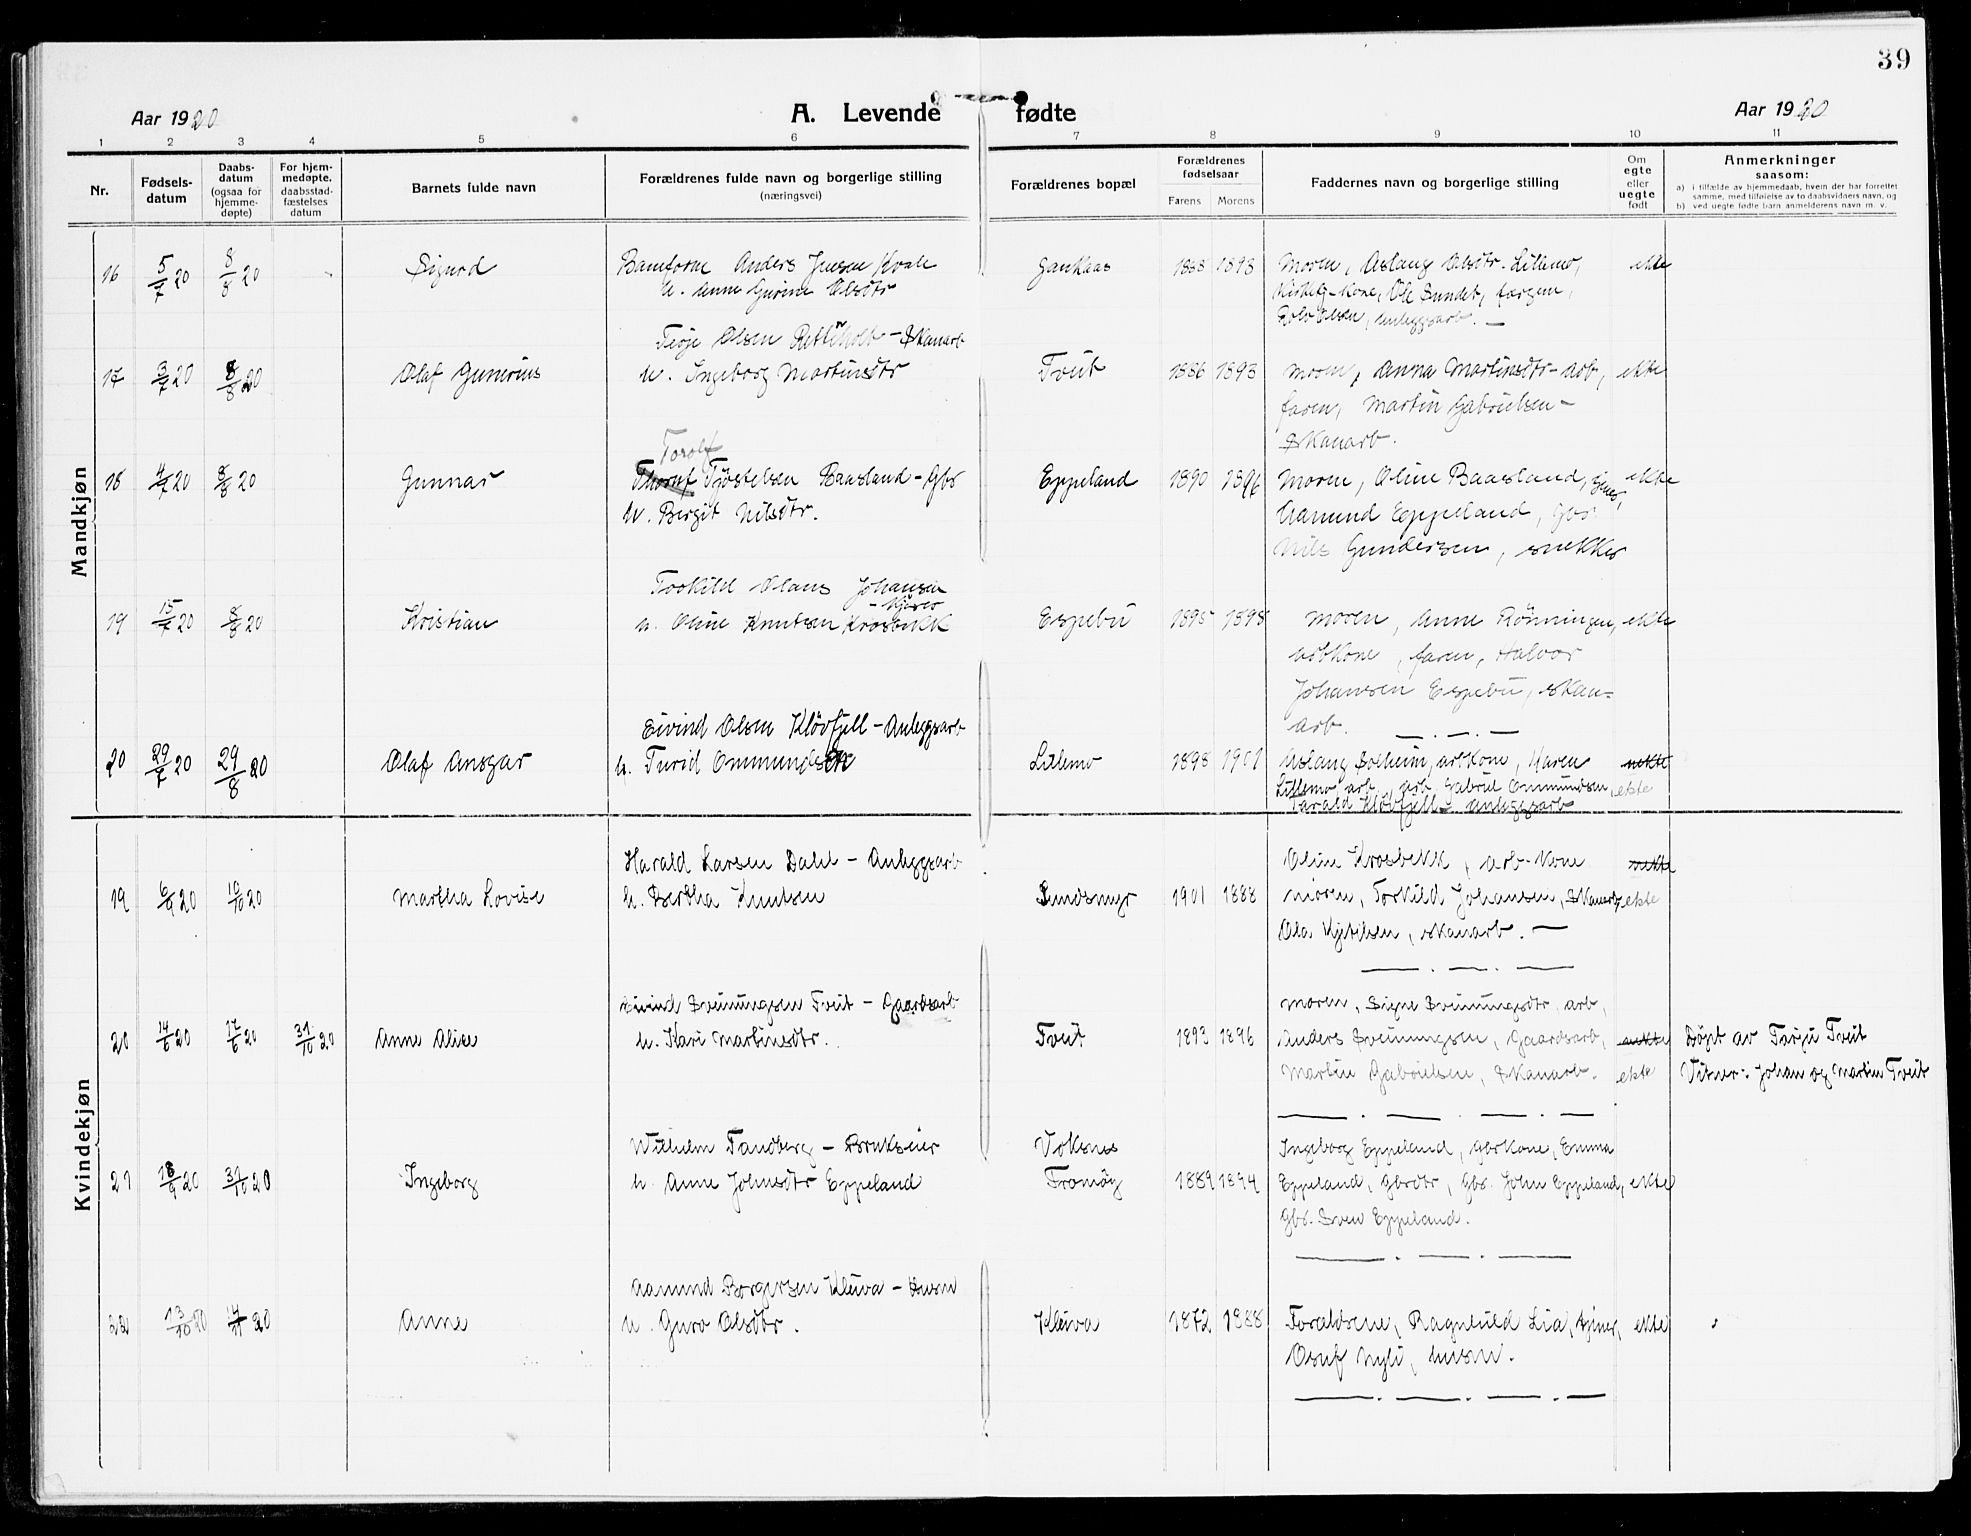 39
Aar 1920 A. Levende fødte Aar 1920
1 2 3 4 5 6 7 8 9 10 11
Nr.
Fødsels-datum
Daabs-datum (ogsaa for hjemme-døpte)
For hjem-medøpte, daabsstad-fæstelses datum
Barnets fulde navn
Forældrenes fulde navn og borgerlige stilling (næringsvei)
Forældrenes bopæl
Forældrenes fødselsaar
Farens Morens
Faddernes navn og borgerlige stilling
Om egte eller uegte født
Anmerkninger saasom:
a) i tilfælde av hjemmedaab, hvem der har forrettet samme, med tilføielse av to daabsvidners navn, og
b) ved uegte fødte barn anmelderens navn m. v.
Mandkjøn
16 5/7 20 8/8 20 Sigurd
Anders Jensen Kvale
u. Anne Gurine Olsdtr
1893
Moren, Aslaug Olsdtr. Lillemo,
Kone, Ole Sundet,
Olsen, anleggsarb. —
ekte
17 3/7 20 8/8 20 Olaf Gunerius
Terje Olsen - Skanarb
u. Ingeborg Martinsdtr
Tveit 1886 1893
Moren, Anna Martinsdtr - arb,
faren, Martin Gabrielsen -
Skanarb.
ekte
18 4/7 20 8/8 20 Gunnar
Torolf
Tjöstelsen Baasland - Gbr
u. Bergit Nilsdtr.
Eppeland 1890 1896
Moren, Oline Baasland, tjener,
Aamund Eppeland, Gbr.
Nils Gundersen, snekker
ekte
19 15/7 20 8/8 20 Kristian
Torkild Olaus Johansen
u. Oline Knutsen Krosbekk
Espebu 1895 1898
Moren, Anne Rönningen,
arbkone, faren, Halvor
Johansen Espebu, skan-
arb.
ekte
20 29/7 20 29/8 20 Olaf Ansgar
Eivind Olsen Klövfjell - Anleggsarb
u. Turid Ommundsen
Lillemo 1898 1901
Aslaug Solheim, arbkone, Karen
Lillemo arb, arb. Gabriel Ommundsen,
Tarald Klövfjell anleggsarb
uekte
ekte
Kvindekjøn
19 6/9 20 10/10 20 Martha Lovise
Harald Larsen Dahl - Anleggsarb
u. Bertha Knutsen
Sundsmyr 1901 1888
Oline Krosbekk, arb-kone
moren, Torkild Johansen, Skanarb,
Ola Kjetilsen, skanarb. —
uekte
ekte
20 14/6 20 17/6 20 31/10 20 Anne Alise
Eivind Sveinungsen Tveit - Gaardsarb
u. Kari Martinsdtr.
Tveit 1893 1896
Moren, Signe Sveinungsdtr arb,
Anders Sveinungsen, Gaardsarb,
Martin Gabrielsen, Skanarb.
uekte
ekte
Döpt av Tarju Tveit
Vitner: Johan og Martin Tveit
21 18/9 20 31/10 20 Ingeborg
Wilhelm Tandberg - Brukseier
u. Anne Johnsdtr Eppeland
Voksnes
Tromöy 1889 1894
Ingeborg Eppeland, Gbrkone, Emma
Eppeland, Gbrdtr, Gbr. John Eppeland,
Gbr. Sven Eppeland.
ekte
22 13/10 20 14/11 20 Anne
Aamund Borgersen Kleiva - Husm
u. Guro Olsdtr.
Kleiva 1872 1888
Foreldrene, Ragnhild Lia, tjener,
Osuf Nyli, husm.
ekte